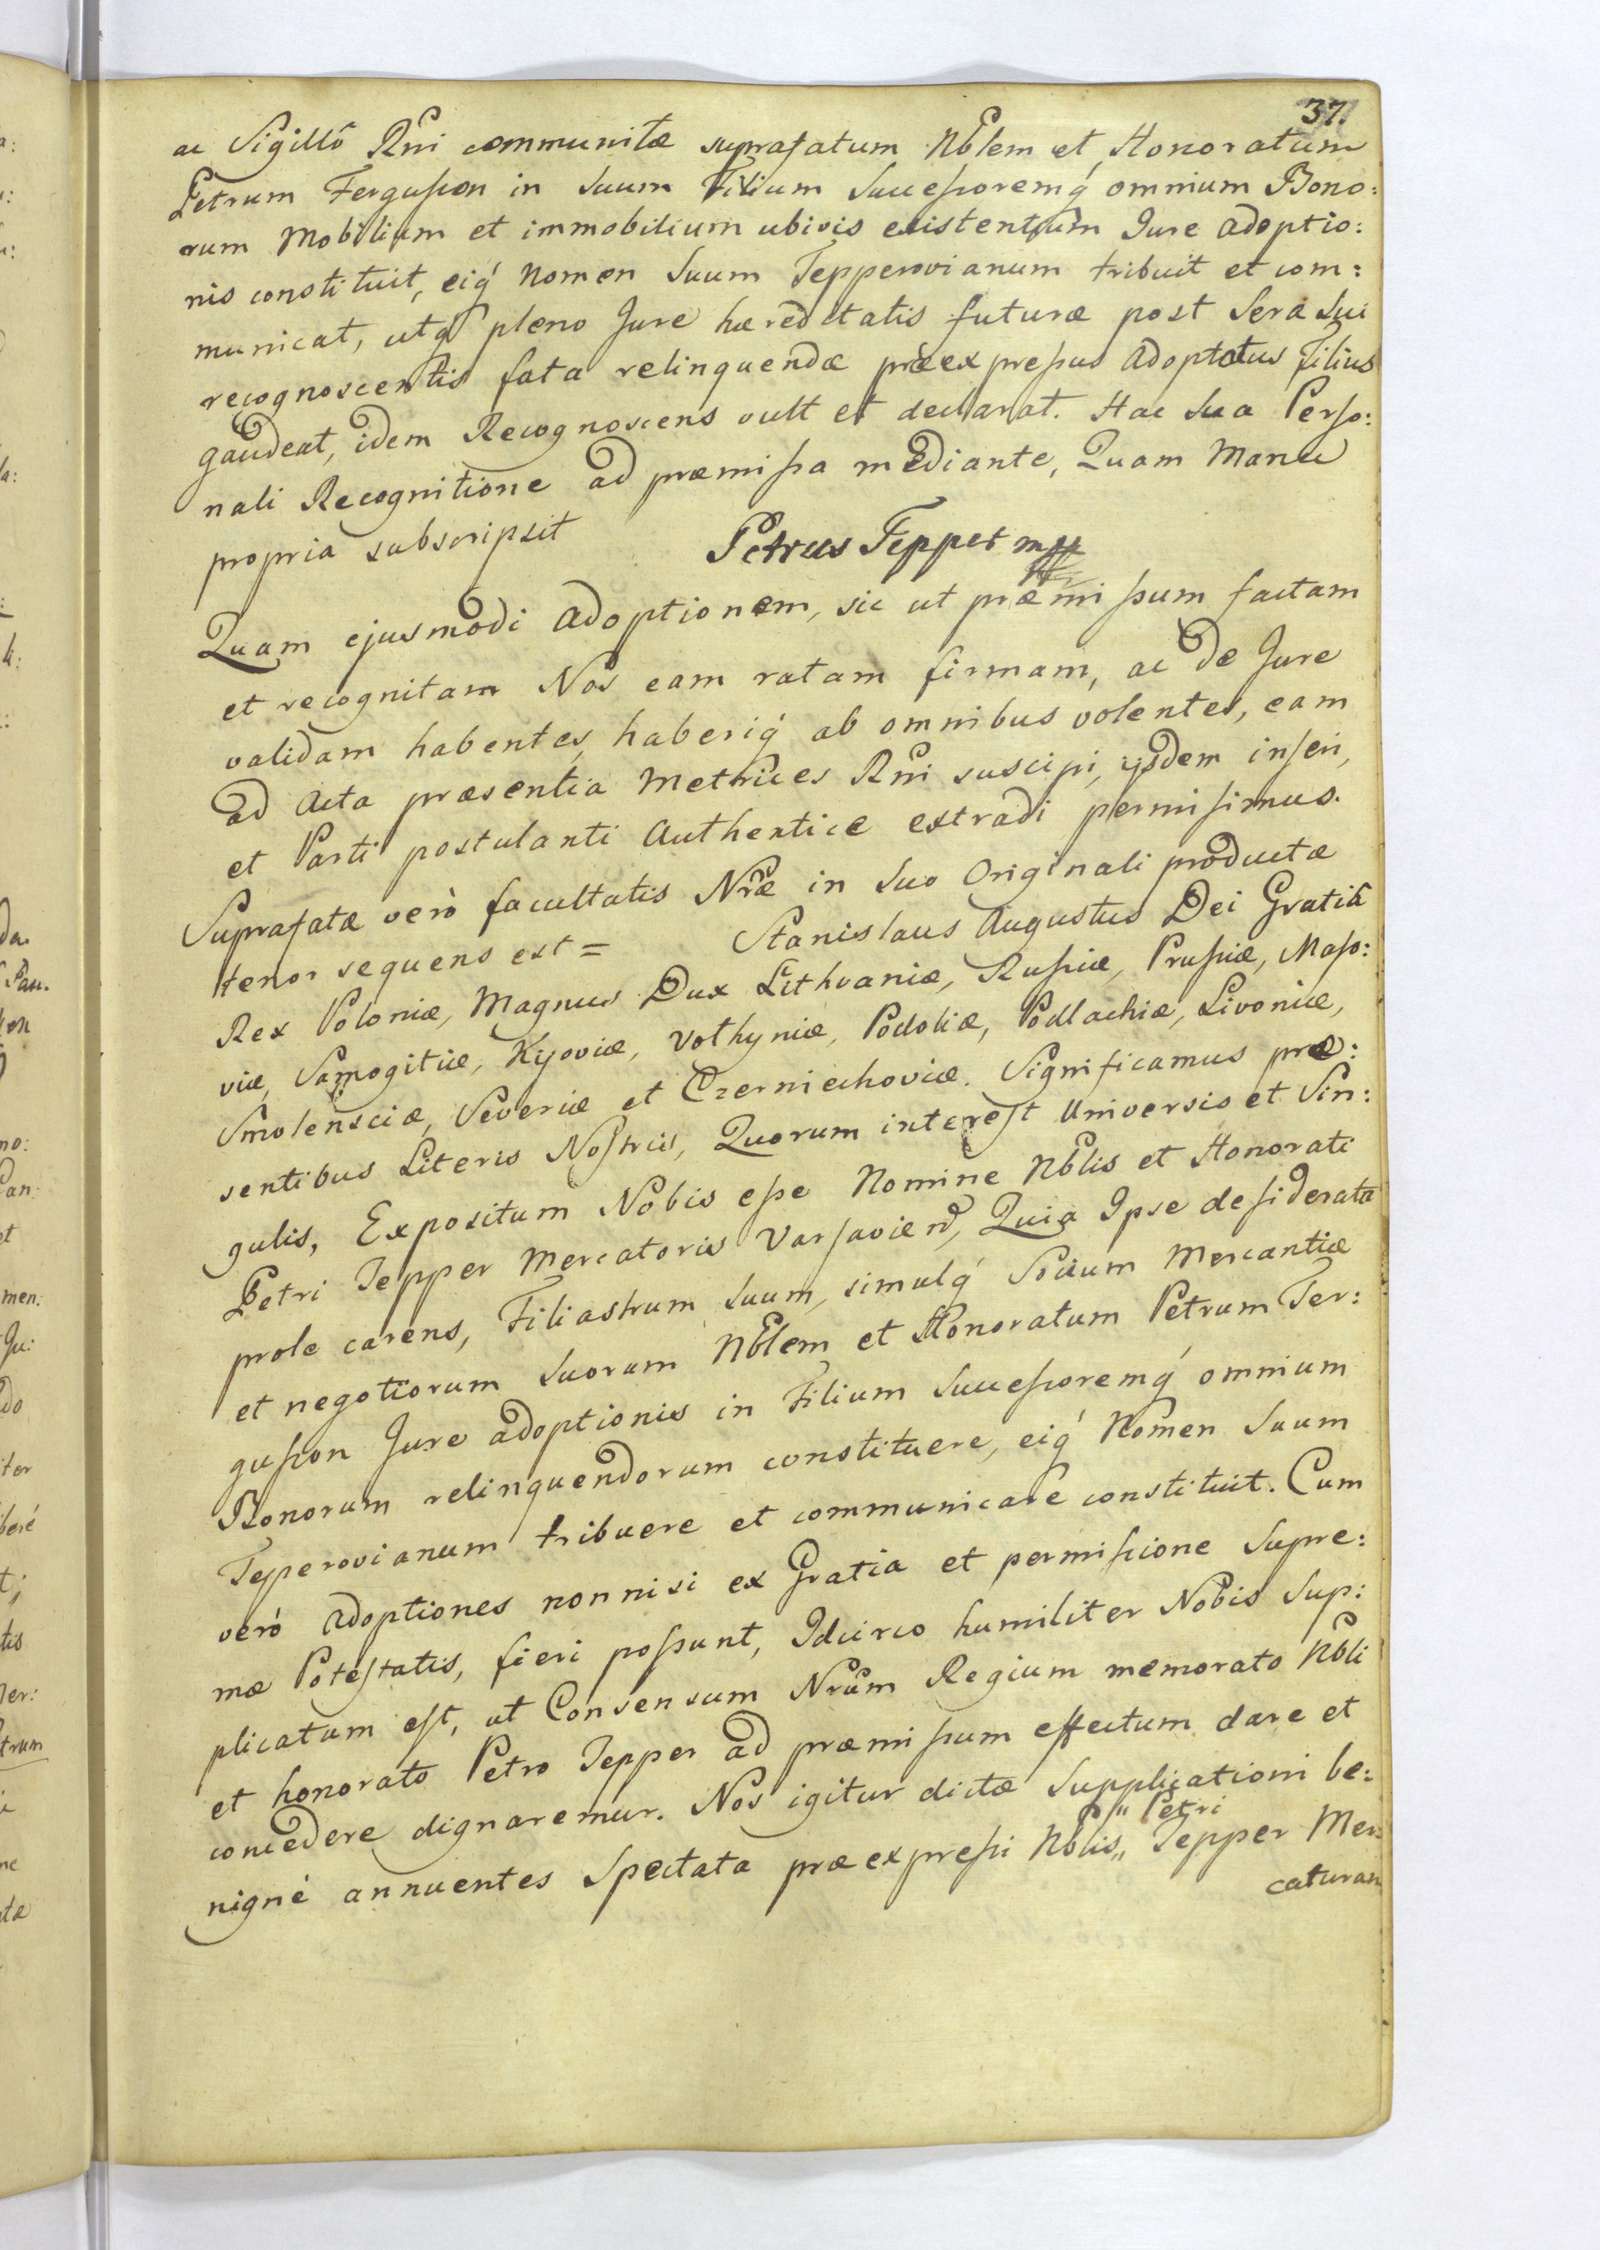 37.
ac Sigillô Rni communitæ suprafatum Nblem et Honoratum
Petrum Fergusson in Suum Filium Successoremq́ omnium Bono:
rum Mobilium et immobilium ubivis existentium Jure Adoptio:
nis constituit, eiq́ Nomen Suum Tepperovianum tribuit et com:
municat, utq́ pleno Jure hæreditatis futuræ post Sera Sui
recognoscentis fata relinquendæ præexpressus Adoptatus Filius
gaudeat, idem Recognoscens vult et declarat. Hac Sua Perso:
nali Recognitione ad præmissa mediante, Quam Manu
propria subscripsit Petrus Tepper mp
Quam ejusmodi Adoptionem, sic ut præmissum factam
et recognitam Nos eam ratam firmam, ac de Jure
validam habentes, haberiq́ ab omnibus volentes, eam
ad Acta præsentia Metrices Rni suscipi, ijsdem inseri,
et Parti postulanti Authentice extradi permisimus.
Suprafatæ verò facultatis Nræ in Suo Originali productæ
tenor sequens est = Stanislaus Augustus Dei Gratiâ
Rex Poloniæ, Magnus Dux Lithvaniæ, Russiæ, Prussiæ, Maso:
viæ, Samogitiæ, Kijoviæ, Volhyniæ, Podoliæ, Podlachiæ, Livoniæ,
Smolensciæ, Severiæ et Czerniechoviæ. Significamus præ:
sentibus Literis Nostris, Quorum interest Universis et Sin:
gulis, Expositum Nobis esse Nomine Nblis et Honorati
Petri Tepper Mercatoris Varsavien, Quia Ipse desiderata
prole carens, Filiastrum Suum, simulq́ Socium Mercantiæ
et negotiorum Suorum Nblem et Honoratum Petrum Fer:
gusson Jure Adoptionis in Filium Successoremq́ omnium
Bonorum relinquendorum constituere, eiq́ Nomen Suum
Teperovianum tribuere et communicare constituit. Cum
verò Adoptiones nonnisi ex Gratia et permissione Supre:
mæ Potestatis, fieri possunt, Idcirco humiliter Nobis Sup:
plicatum est, ut Consensum Nrum Regium memorato Nbli
et honorato Petro Tepper ad præmissum effectum dare et
concedere dignaremur. Nos igitur dictæ Supplicationi be:
nigné annuentes Spectata præexpressi Nblis,, ,,Petri Tepper Mer:
caturam